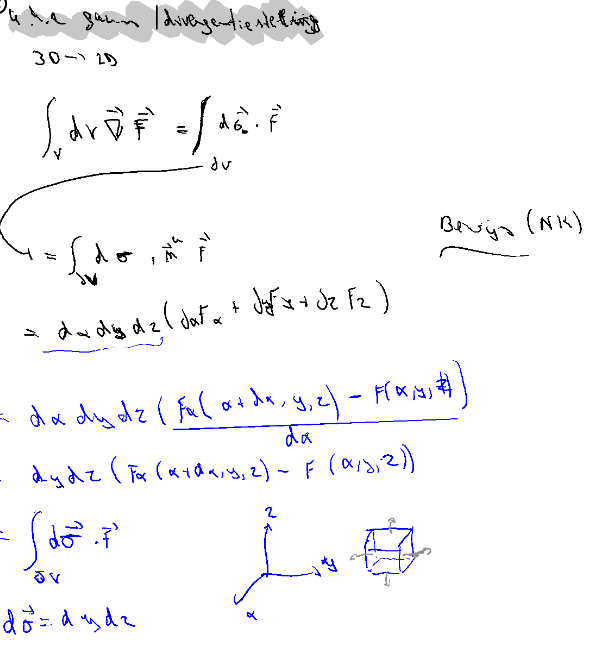 gauss / divergentiestelling
3D → 2D
∫_V dV ∇⃗ F⃗ = ∫_∂V dσ⃗ · F⃗
Bewijs (NK)
= ∫_∂V dσ · n⃗ F⃗
= dx dy dz (∂xFx + ∂yFy + ∂z Fz)
= dx dy dz ( Fx( x+dx, y, z) − F(x, y, z) / dx )
dy dz ( Fx (x+dx, y, z) − F (x, y, z))
= ∫_∂V dσ⃗ · F⃗
z
y
x
dσ⃗ = dy dz